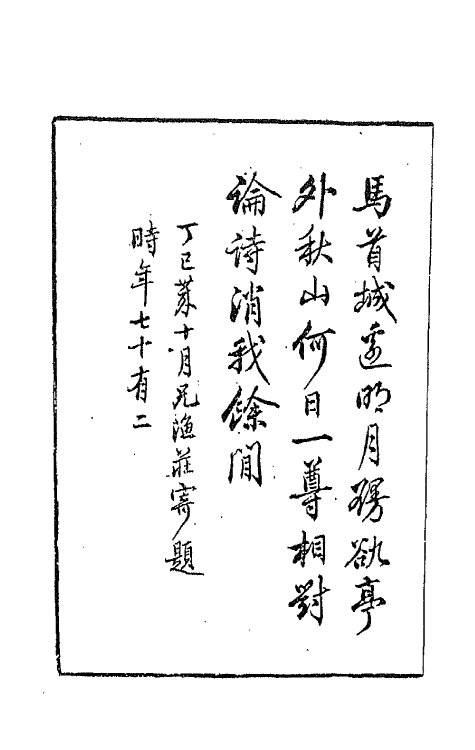 馬首城邊明月殘欲亭
外秋山何日一尊相對
論詩消我餘閒
丁巳十月兄漁莊寄題
時年七十有二